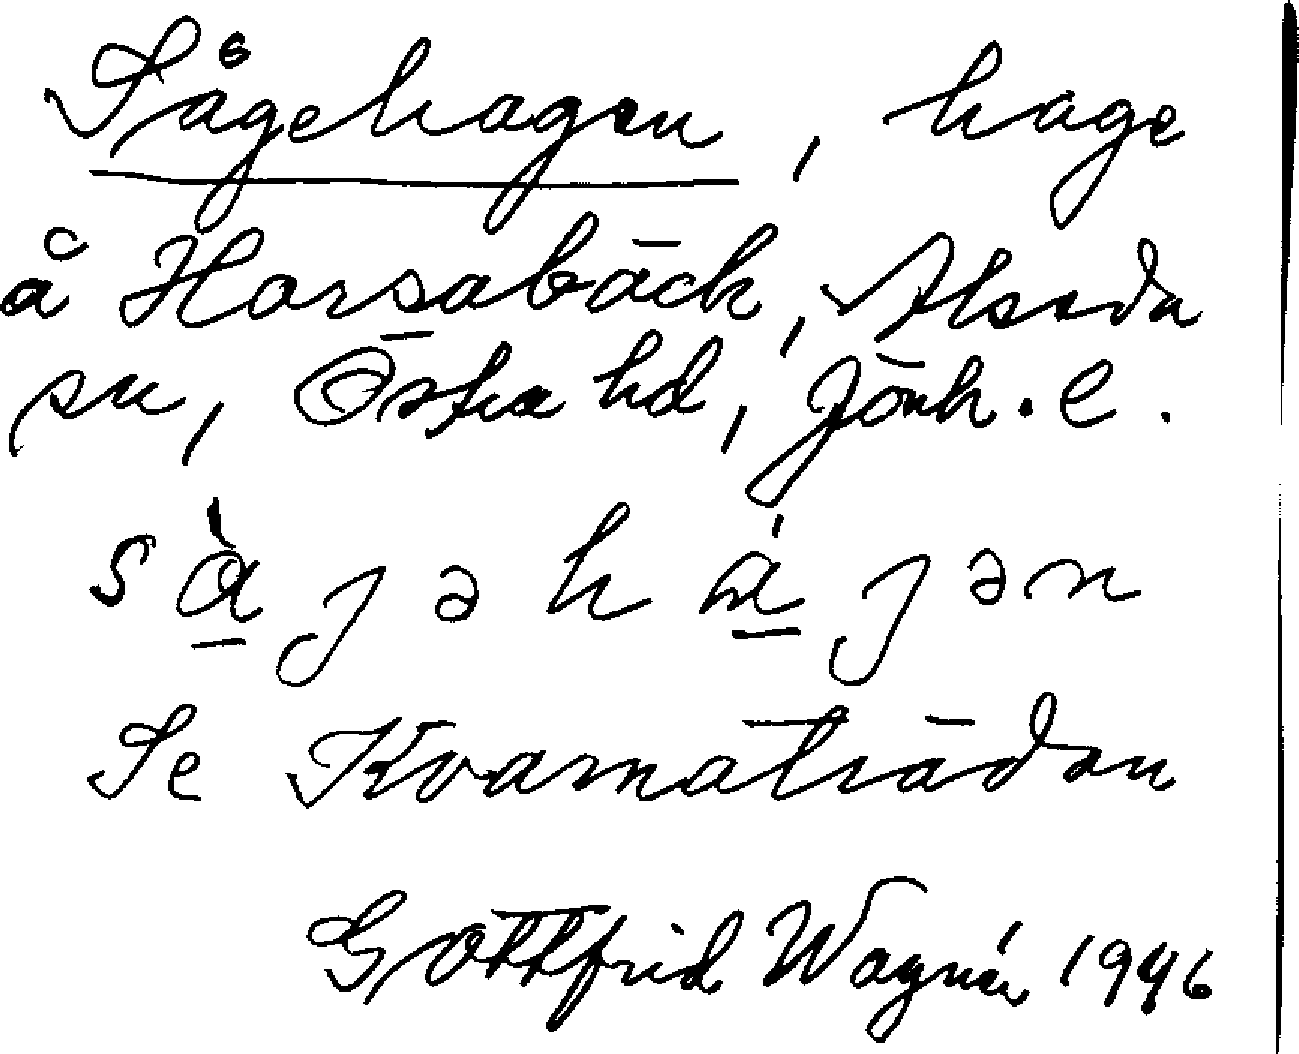 Sågehagen, hage
å Horsabäck, Alseda
sn, Östra hd, Jönk. l.
sàjəhájən
Se Kvarnaträdan
Gottfrid Wagnér 1946